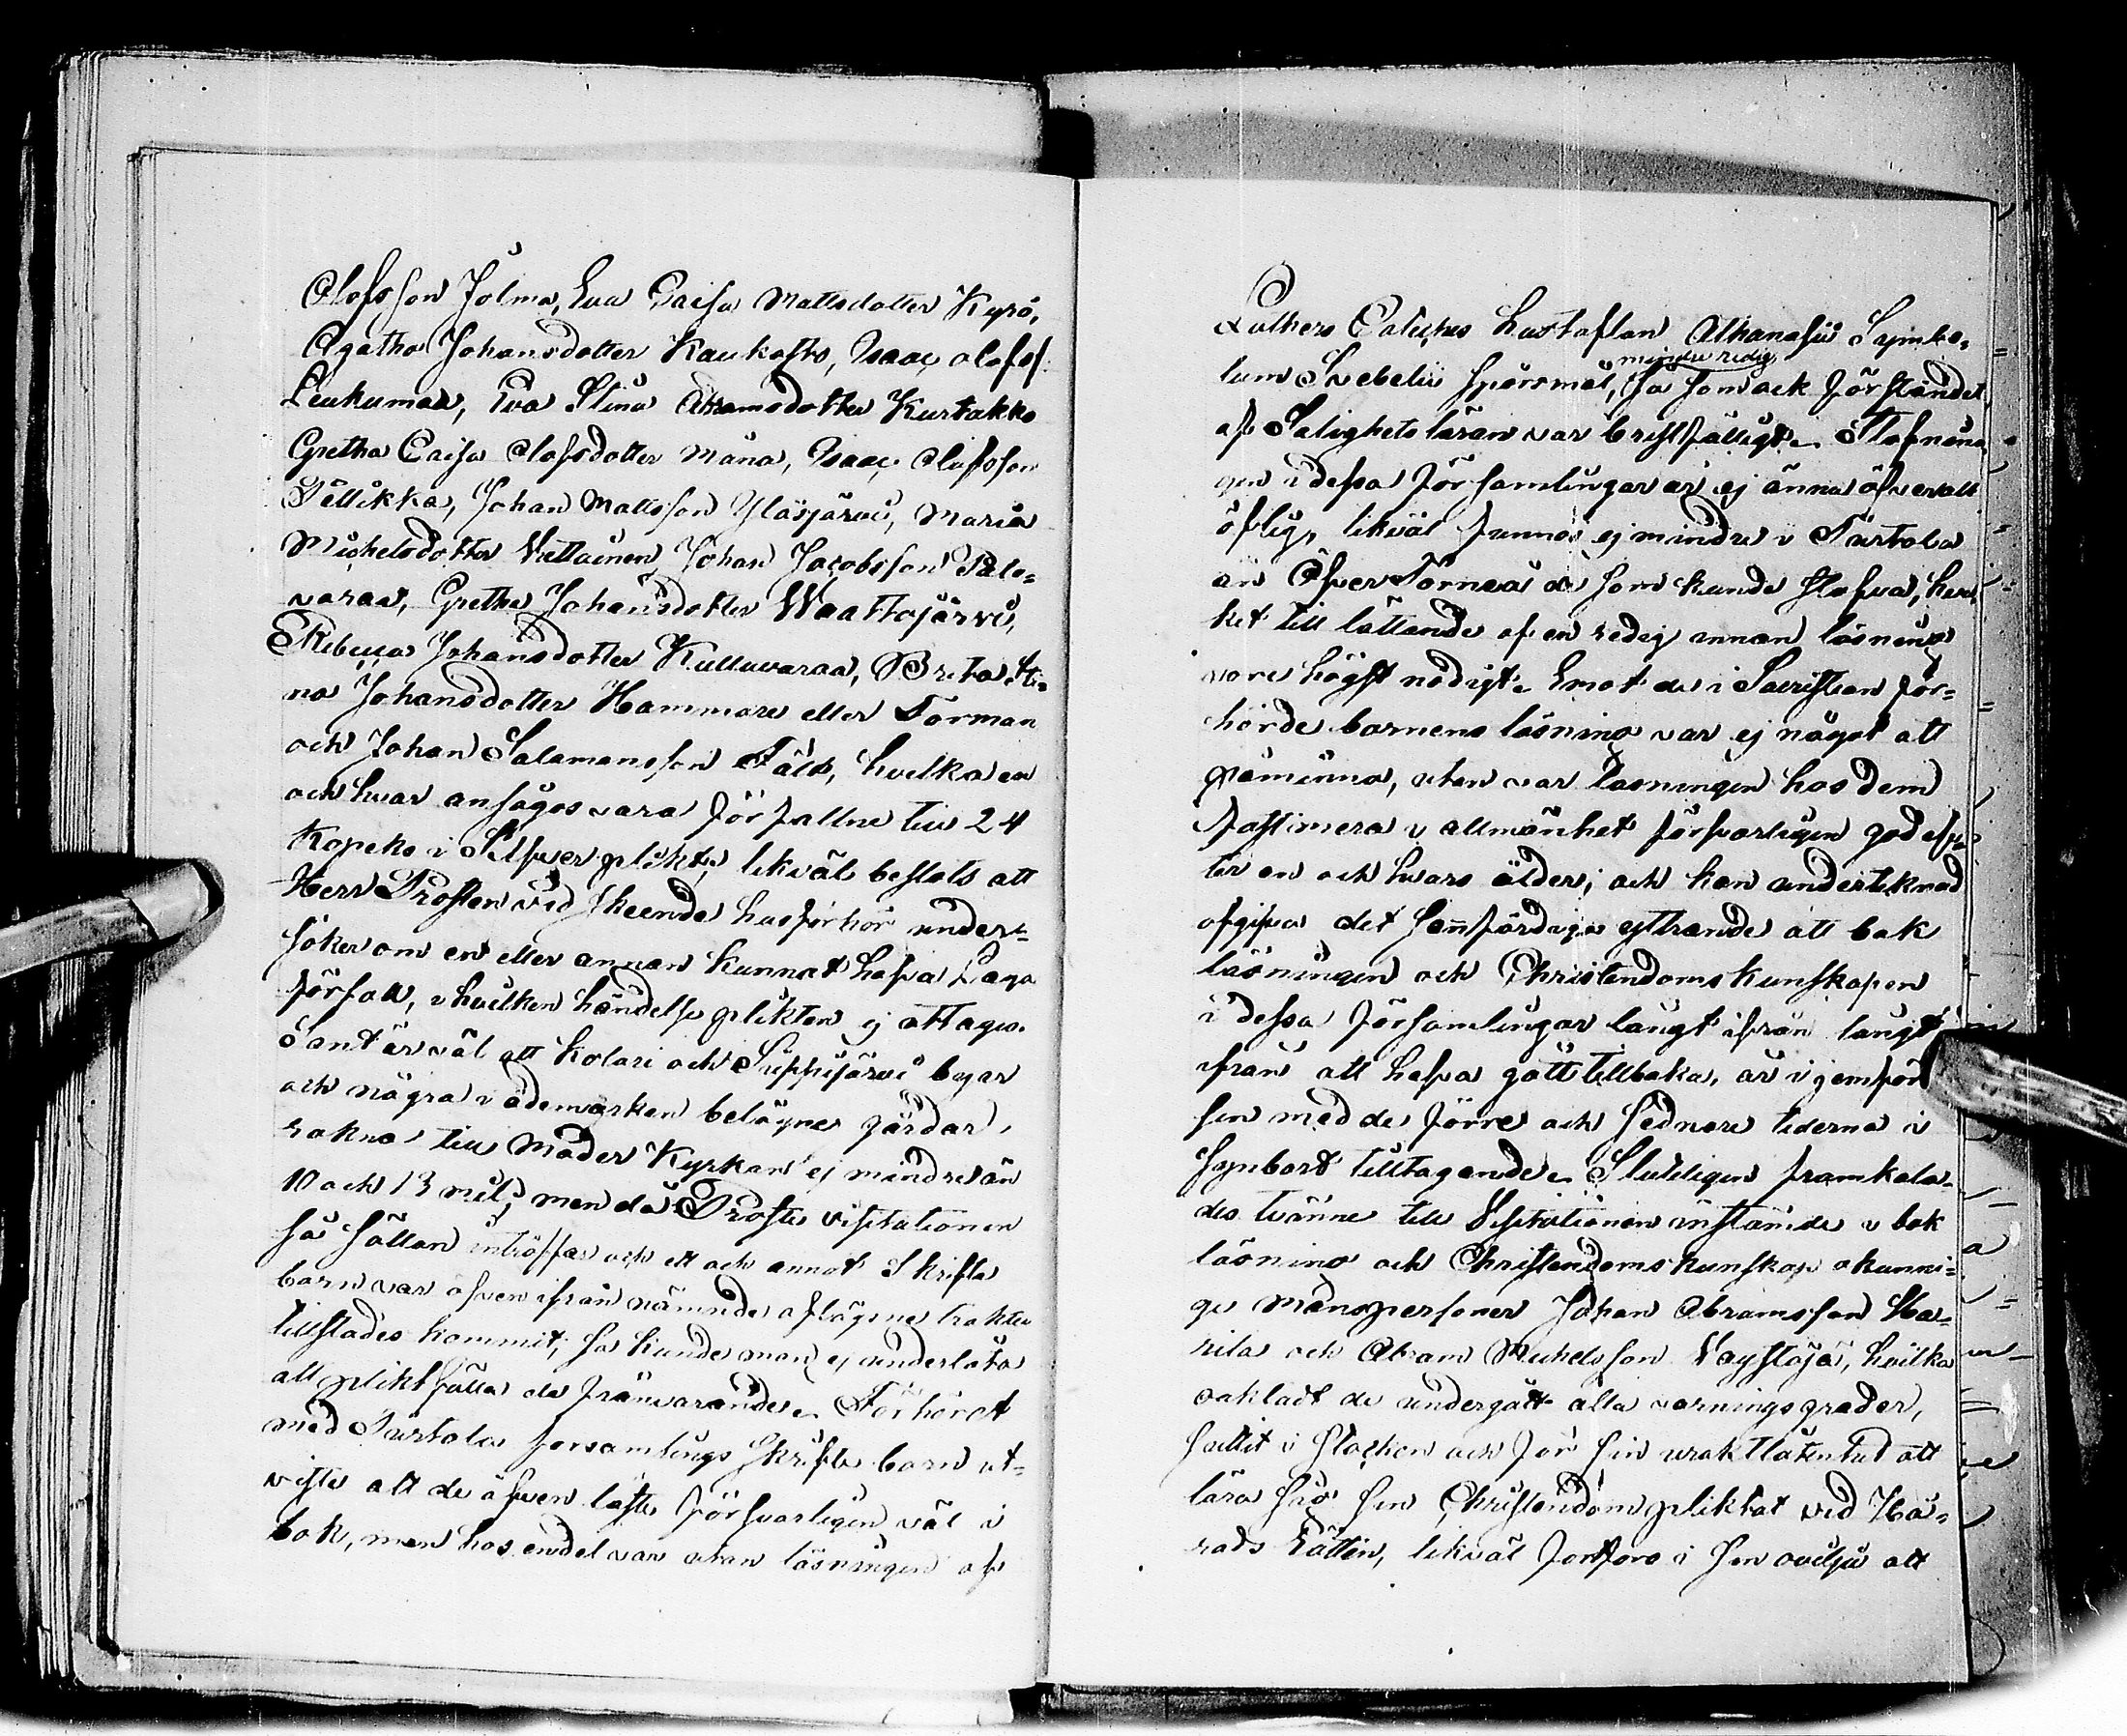 Olofsson Jolma, Eva Caisa Mattsdotter Kyrö,
Agatha Johansdotter Kaukosto, Isaac Olofss.
Leukuma, Eva Stina Abramsdotter Kurtakko
Gretha Caisa Olofsdotter Mäna, Isaac Olofsson
Pellikka, Johan Mattsson Yläsjärvi, Maria
Michelsdotter Vittainen, Johan Jacobsson Palo-
varaa, Gretha Johansdotter Waattojärvi,
Rebecca Johansdotter Kulluvaraa, Brita Sti-
na Johansdotter Hammare eller Forman
och Johan Salamonsson Fält, hvilka en
och hvar ansågos vara förfallne till 24
Kopeks i Silfver plikt; likväl beslöts att
Herr Prosten vid skeende husförhör under-
söker om en eller annan kunnat hafva Laga
förfall, i hvilken händelse plikten ej uttages.
Sant är väl att Kolari och Sieppijärvi byar
och några i ödemarken belägne gårdar,
räkna till Moder Kyrkan ej mindre än
10 och 13 mil; men då Prosts visitationen
så sällan inträffar och ett och annat Skrifte
barn var äfven ifrån nämnde aflägsne trakter
tillstädes kommit; så kunde man ej underlåta
att pliktfälla de frånvarande. Förhöret
med Turtola församlings Skrifte barn ut-
viste att de äfven läste försvarligen väl i
bok, men hos en del var utan läsningen af
Luthers Cateches hustaflan Athanasii Symbo-
lum Svebelii Spörsmål, mindre redig, så som ock förståndet
af Salighets läran var bristfälligt. Stafnin-
gen i dessa församlingar är ej ännu öfverallt
öflig, likväl funnos ej mindre i Turtola
än Öfver Torneå de som kunde stafva, hvil-
ket till lättande af en redig innan läsning
vore högst nödigt. Emot de i Sacristian för-
hörde barnens läsning var ej något att
påminna, utan var läsningen hos dem
fastmera i allmänhet försvarligen god ef-
ter en och hvars ålder; och kan undertecknad
afgifva det sannfärdiga yttrande att bok
läsningen och Christendoms kunskapen
i dessa församlingar långt ifrån långt
ifrån att hafva gått tillbaka, är i jemförel
sen med de förre och sednare tiderna i
synbart tilltagande. Slutligen framkalla-
des tvänne till Visitationen instämde i bok
läsning och Christendoms kunskap okunni-
ge mans personer Johan Abramsson Ha-
rila och Abram Michelsson Vaystäjä, hvilka
oaktadt de undergått alla varningsgrader,
suttit i stocken och för sin uraktlåtenhet att
lära sig sin Christendom pliktat vid Hä-
rads Rätten, likväl fortfara i sin ovilja att